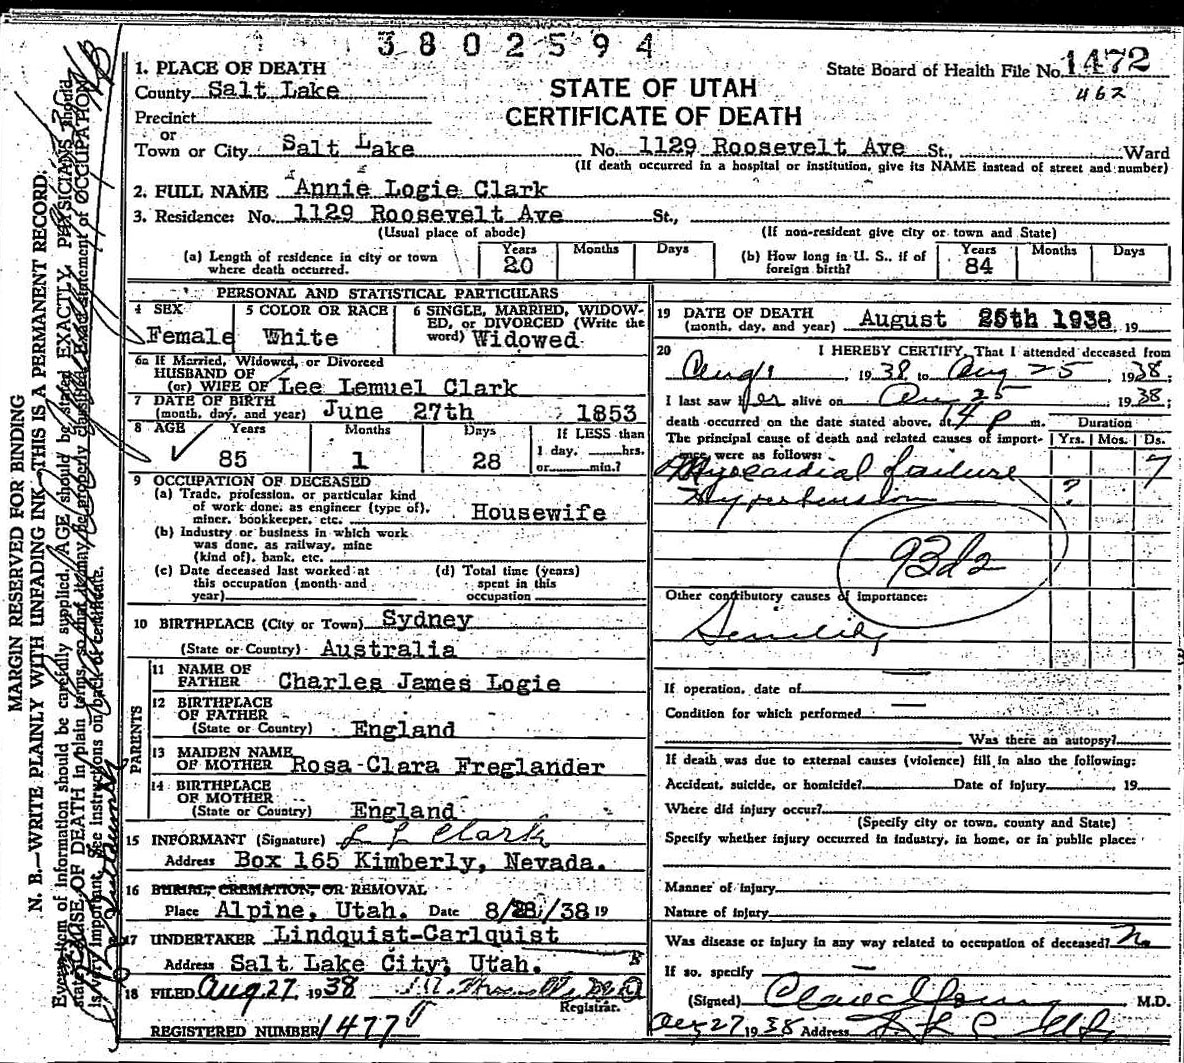 3802594
1. PLACE OF DEATH
State Board of Health File No. 1472
County Salt Lake
STATE OF UTAH
462
Precinct
CERTIFICATE OF DEATH
or
Town or City Salt Lake No. 1129 Roosevelt Ave St., Ward
(If death occurred in a hospital or institution, give its NAME instead of street and number)
2. FULL NAME Annie Logie Clark
3. Residence: No. 1129 Roosevelt Ave St.,
(Usual place of abode) (If non-resident give city or town and State)
(a) Length of residence in city or town where death occurred. Years 20 Months Days
(b) How long in U. S., if of foreign birth? Years 84 Months Days
PERSONAL AND STATISTICAL PARTICULARS
4 SEX Female
5 COLOR OR RACE White
6 SINGLE, MARRIED, WIDOWED, or DIVORCED (Write the word) Widowed
6a If Married, Widowed, or Divorced
HUSBAND OF
(or) WIFE OF Lee Lemuel Clark
7 DATE OF BIRTH
(month, day, and year) June 27th 1853
8 AGE Years Months Days If LESS than
85 1 28 1 day, hrs.
or min.?
9 OCCUPATION OF DECEASED
(a) Trade, profession, or particular kind
of work done, as engineer (type of),
miner, bookkeeper, etc. Housewife
(b) Industry or business in which work
was done, as railway, mine
(kind of), bank, etc.
(c) Date deceased last worked at
this occupation (month and
year)
(d) Total time (years)
spent in this
occupation
10 BIRTHPLACE (City or Town) Sydney
(State or Country) Australia
PARENTS
11 NAME OF
FATHER Charles James Logie
12 BIRTHPLACE
OF FATHER
(State or Country) England
13 MAIDEN NAME
OF MOTHER Rosa Clara Freglander
14 BIRTHPLACE
OF MOTHER
(State or Country) England
15 INFORMANT (Signature) L L Clark
Address Box 165 Kimberly, Nevada.
16 BURIAL, CREMATION, OR REMOVAL
Place Alpine, Utah. Date 8/28/38 19
17 UNDERTAKER Lindquist-Carlquist
Address Salt Lake City, Utah.
18 FILED Aug 27 1938
Registrar.
REGISTERED NUMBER 1477
19 DATE OF DEATH
(month, day, and year) August 25th 1938 19
20 I HEREBY CERTIFY, That I attended deceased from
Aug 1, 1938 to Aug 25, 1938;
I last saw her alive on Aug 25 1938;
death occurred on the date stated above, at 4 p m. Duration
The principal cause of death and related causes of importance were as follows: Yrs. Mos. Ds.
Myocardial failure 7
Hypertension ?
93d2
Other contributory causes of importance:
Senility
If operation, date of
Condition for which performed
Was there an autopsy?
If death was due to external causes (violence) fill in also the following:
Accident, suicide, or homicide? Date of injury , 19
Where did injury occur?
(Specify city or town, county and State)
Specify whether injury occurred in industry, in home, or in public place:
Manner of injury
Nature of injury
Was disease or injury in any way related to occupation of deceased? No
If so, specify
(Signed) M.D.
Aug 27 1938 Address S L C Utah
MARGIN RESERVED FOR BINDING
N. B.—WRITE PLAINLY WITH UNFADING INK—THIS IS A PERMANENT RECORD.
Every item of information should be carefully supplied. AGE should be stated EXACTLY. PHYSICIANS should
state CAUSE OF DEATH in plain terms, so that it may be properly classified. Exact statement of OCCUPATION
is very important. See instructions on back of certificate.